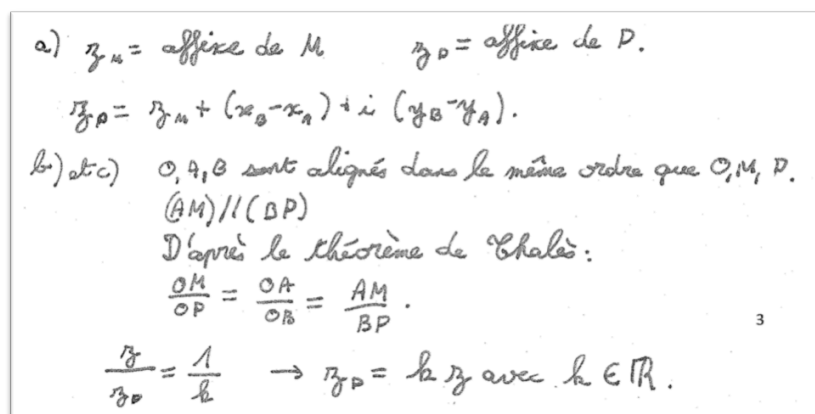 a) z_M = affixe de M z_P = affixe de P.
z_P = z_M + (x_B - x_A) + i (y_B - y_A).
b) et c) O, A, B sont alignés dans le même ordre que O, M, P.
(AM) // (BP)
D'après le théorème de Thalès :
OM/OP = OA/OB = AM/BP.
3
z/z_P = 1/k → z_P = k z avec k ∈ ℝ.